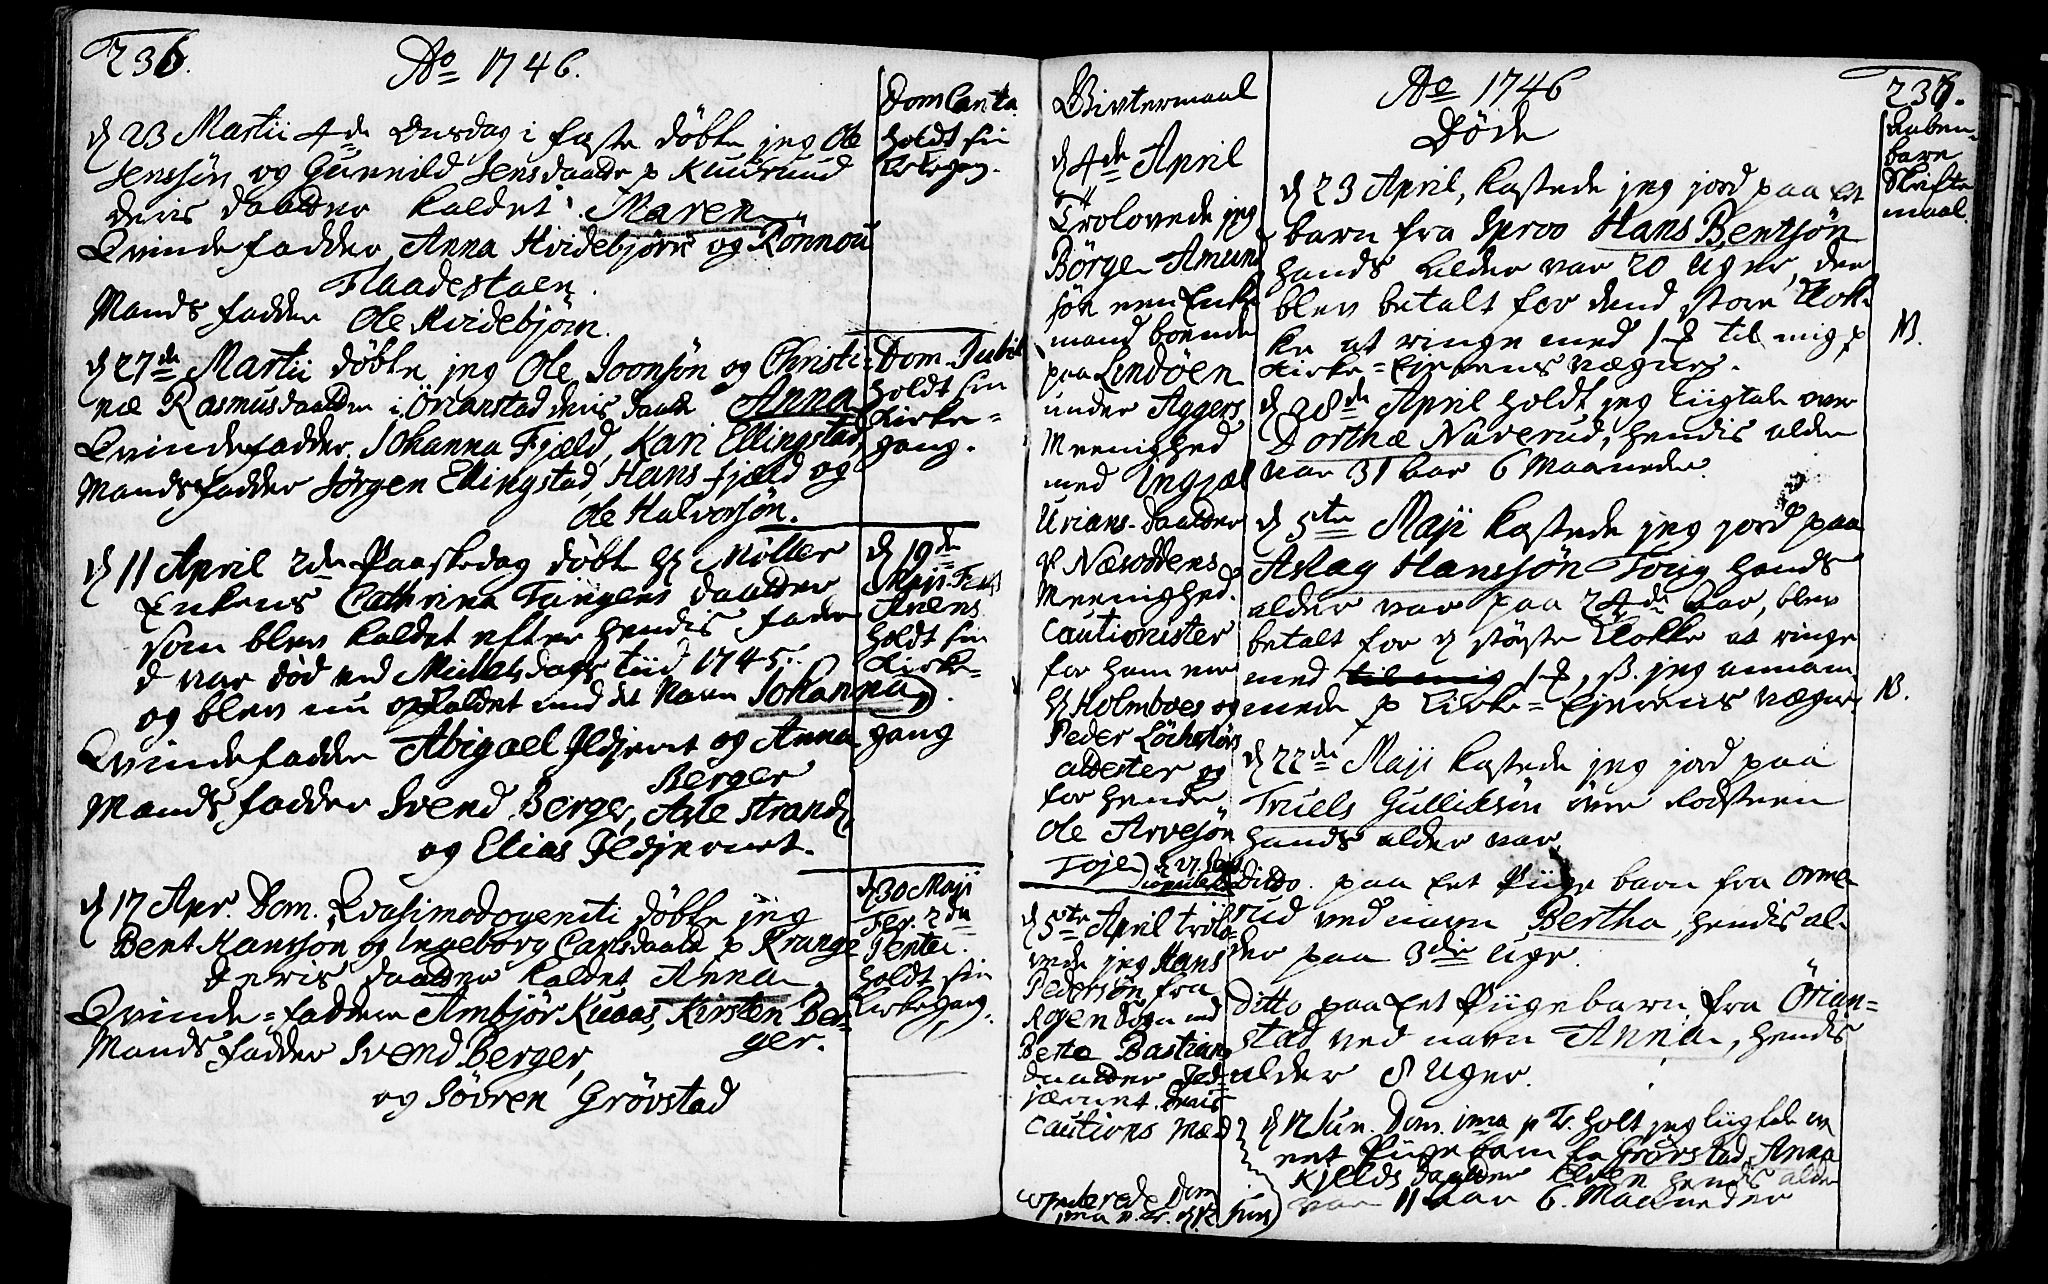 236.
Ao 1746.
d 23 Martii 4de Onsdag i faste döbte jeg Ole
Jenssön og Gunnild Jensdaatter p Kudsrund
deris daatter kaldet Maren
Qvindefadder Anna Hvidebjörn og Rönnou
Flaadestaen.
Mandsfadder Ole Hvidebjörn.
d 27de Martii döbte jeg Ole Joonsön og Christi=
næ Rasmusdaatter i Örianstad deris daatt Anna
Qvindefadder Johanna Fjæld, Kari Ellingstad
Mandsfadder Jörgen Ellingstad, Hans Fjæld og
Ole Halvorsön.
d 11 April 2den Paaskedag döbt Hr Möller
Enkens Cathrina Tangens daatter
som blev kaldet efter hendis fader
d var död ved Mickelsdags tiid 1745.
og blev nu opkaldet med det Navn Johanna
Qvindefadder Abigael Ildjernet og Anna
Berger
Mandsfadder Svend Berger, Asle Strand,
og Elias Ildjernet.
d 17 Apr. Dom. Qvasimodogeniti döbte jeg
Bent Hanssön og Ingeborg Carlsdaatt p Krange
deris daatter kaldet Anna
Qvinde=fadder Ambjör Kuaas, Kirsten Ber=
ger.
Mandsfadder Svend Berger,
og Sövren Grövstad
Dom Canta.
holdt sin
Kirkegang.
Dom. Jubil
holdt sin
Kirke=
gang.
d 19de
Maji
holdt sin
Kirke=
gang
d 30 Maji
Fer. 2da
Pentec.
holdt sin
Kirkegang.
Givtermaal
d 4de April
Trolovede jeg
Börge Amund
sön een Enke
mand boende
paa Lindöen
under Aggers
Meenighed
med Ingjæl
Urians-daatter
Næsoddens
Meenighed.
Cautionister
for ham ere
Hr Holmboes og
Peder Löchstörs
og
for hende
Ole Arvesön
Toje
d 5te April trolo=
vede jeg Hans
Pedersön fra
Røgen Sogn med
Berte Bastians
daatter Ild=
jærnet. Deris
Cautions Mæd
copulerede Dom
1ma p. Tr. d 12 Juni
Ao 1746
Döde
237.
Aaben=
bare
Skrifte
maal.
d 23 April, kastede jeg jord paa et
barn fra Sproo Hans Bentsön
hands alder var 20 uger, der
blev betalt for dend store klok=
ke at ringe med 1 til mig p
Kirke=Ejerens vægne.
N.
d 28de April holdt jeg Liigtale over
Dorthæ Naverud, hendis alder
var 31 aar 6 Maaneder.
d 5te Maji kastede jeg jord paa
Aslag Hanssön Toug hands
alder var paa 24de aar, blev
betalt for d störste klokke at ringe
med til mig 1 , jeg annam
mede p Kirke=Ejerens vægne.
N.
d 22de Maji kastede jeg jord paa
Truels Gulliksön över Kodsteen
hands alder var
Ditto. paa et Piige barn fra Orme
rud ved navn Bertha, hendis al=
der paa 3die uge.
Ditto paa et Piigebarn fra Örian=
stad ved navn Anna, hendis
alder 8 uger.
d 12 Jun. Dom. 1ma p Tr. holt jeg liigtale ov
eet Piigebarn fra Grövstad, Anna
Kjelds daatter hends alder
var 11 aar 6. Maaneder